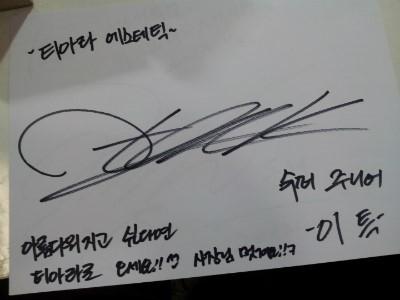 ~티아라 에스테틱~
슈퍼 주니어
-이 특-
아름다워지고 싶다면
티아라로 오세요!! 사장님 멋져요!!ㅋ